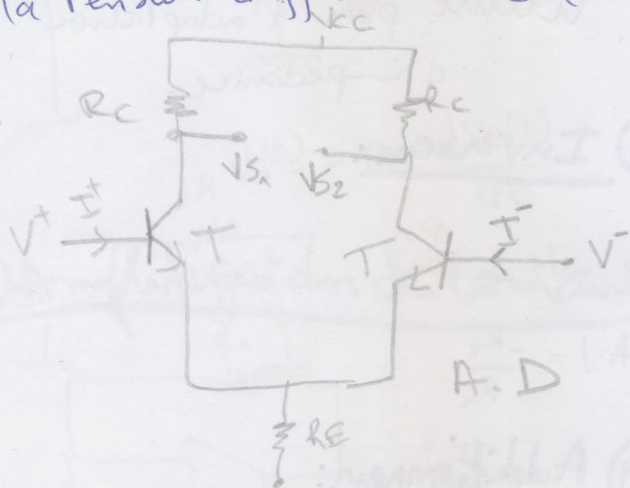 (a Tension
VCC
RC
RC
VS1
VS2
V+
I+
T
T
I-
V-
A.D
RE